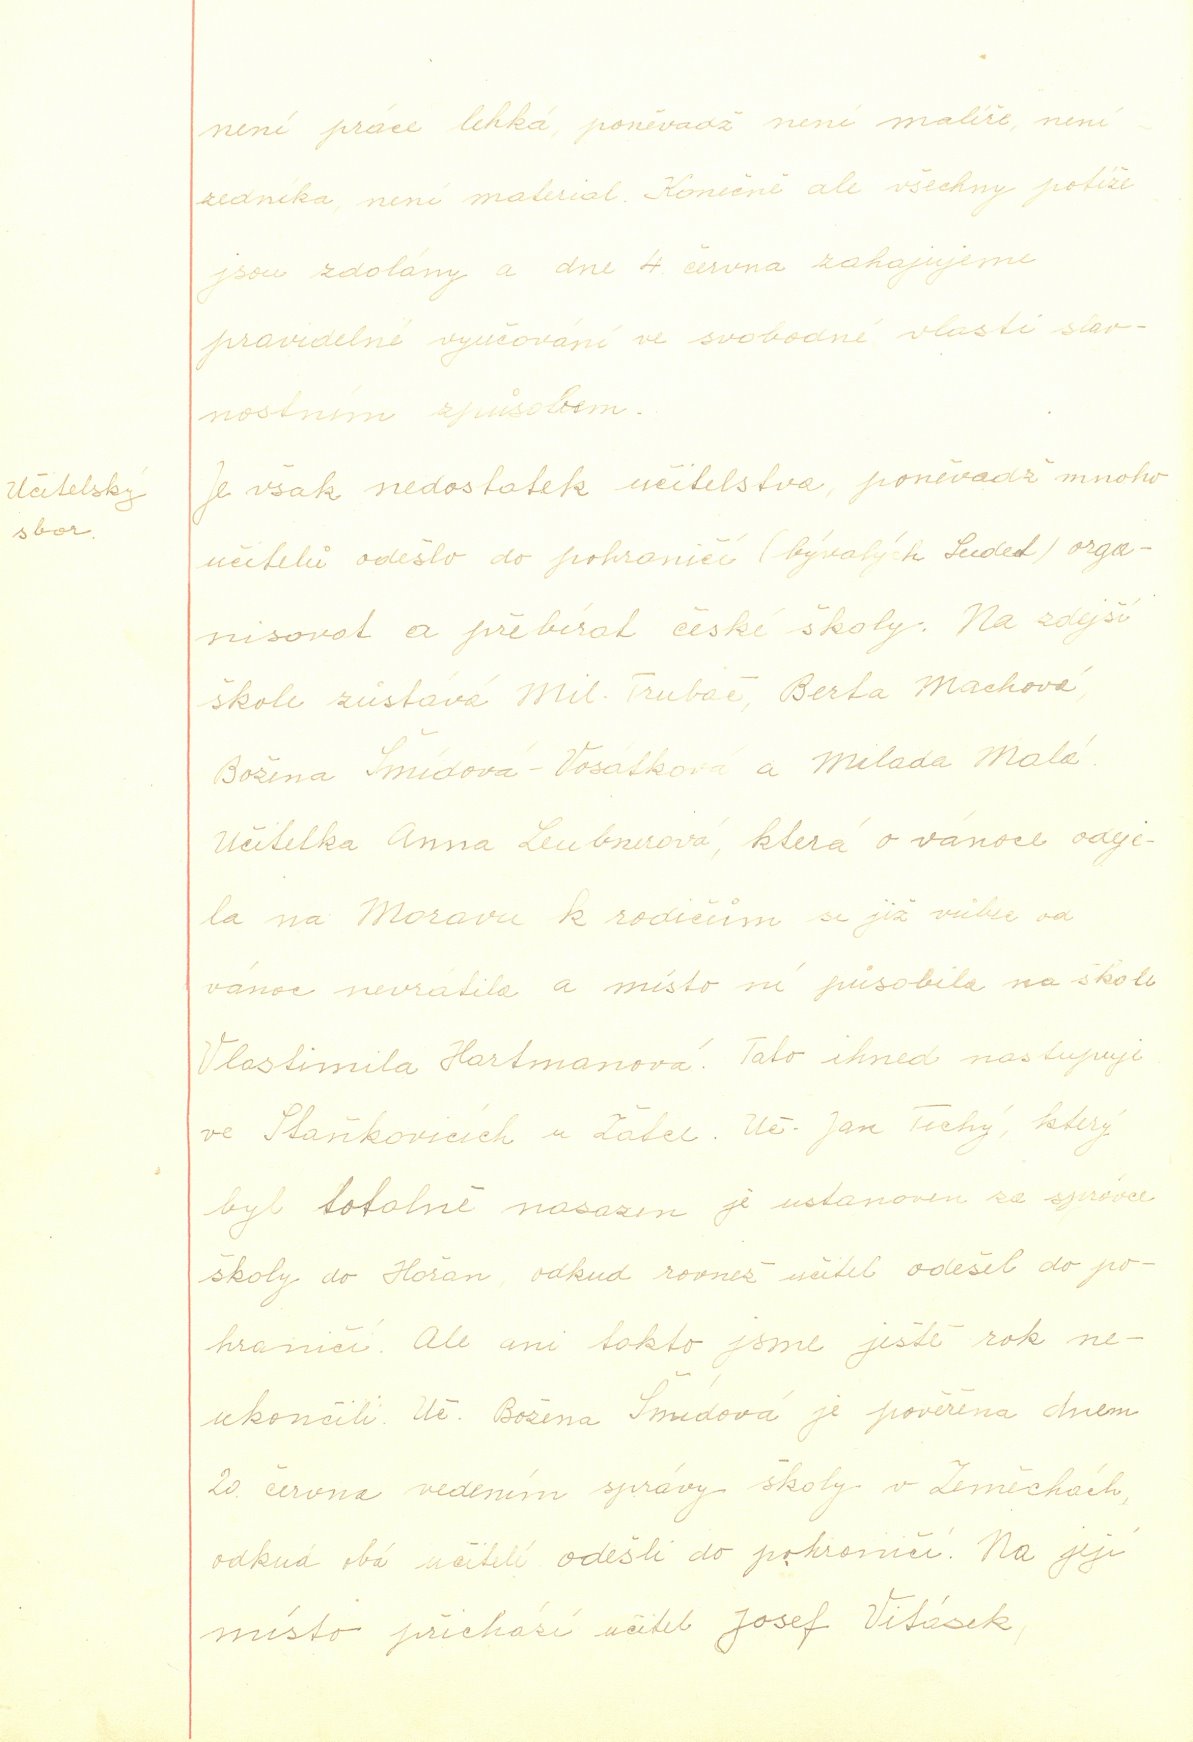 není práce lehká, poněvadž není malíře, není
zedníka, není material. Konečně ale všechny potíže
jsou zdolány a dne 4. června zahajujeme
pravidelné vyučování ve svobodné vlasti slav-
nostním způsobem.
Učitelský
sbor.
Je však nedostatek učitelstva, poněvadž mnoho
učitelů odešlo do pohraničí (bývalých Sudet) orga-
nisovat a přebírat české školy. Na zdejší
škole zůstává Mil. Trubač, Berta Machová,
Božena Šmídová-Vosátková a Milada Malá.
Učitelka Anna Leubnerová, která o vánoce odje-
la na Moravu k rodičům se již vůbec od
vánoc nevrátila a místo ní působila na škole
Vlastimila Hartmanová. Tato ihned nastupuje
ve Staňkovicích u Žatce. Uč. Jan Tichý, který
byl totalně nasazen je ustanoven za správce
školy do Hořan, odkud rovněž učitel odešel do po-
hraničí. Ale ani takto jsme ještě rok ne-
ukončili. Uč. Božena Šmídová je pověřena dnem
20. června vedením správy školy v Zeměchách,
odkud oba učitelé odešli do pohraničí. Na její
místo přichází učitel Josef Vitásek,